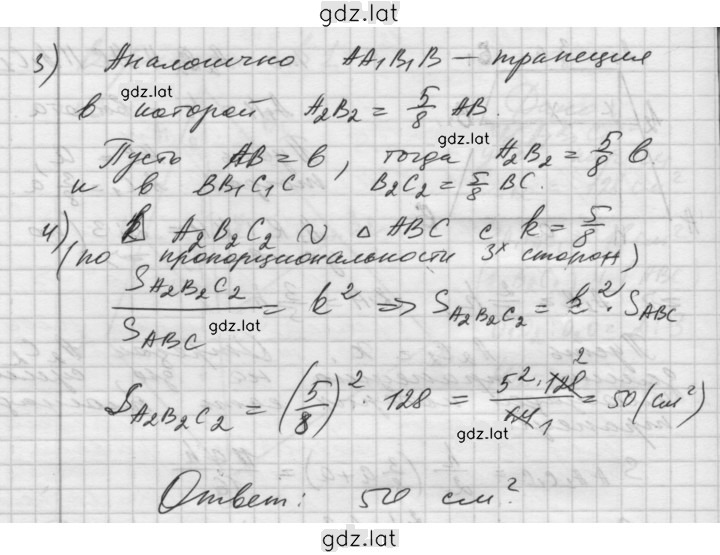 gdz.lat
3) Аналогично AA₁B₁B — трапеция
в которой A₂B₂ = 5/8 AB.
gdz.lat
Пусть AB = b, тогда A₂B₂ = 5/8 b.
gdz.lat
и в BB₁C₁C B₂C₂ = 5/8 BC.
4) Δ A₂B₂C₂ ∾ Δ ABC с k = 5/8
(по пропорциональности 3ˣ сторон)
S_A₂B₂C₂ / S_ABC = k² => S_A₂B₂C₂ = k² · S_ABC
gdz.lat
S_A₂B₂C₂ = (5/8)² · 128 = 5² · 128 2 / 64 1 = 50 (см²)
gdz.lat
Ответ: 50 см².
gdz.lat